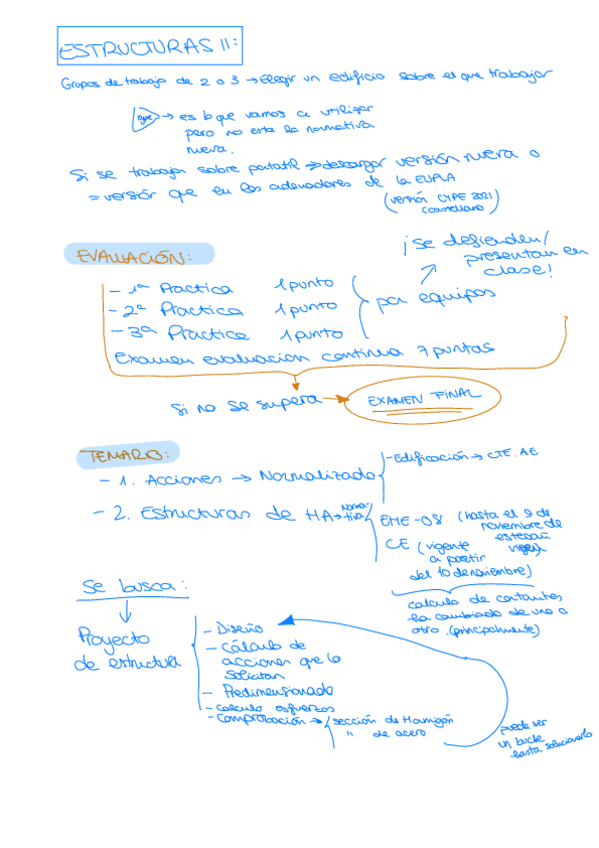 ESTRUCTURAS II:
Grupos de trabajo de 2 o 3 → Elegir un edificio sobre el que trabajar
cype → es lo que vamos a utilizar
pero no esta la normativa
nueva.
Si se trabaja sobre portatil → descargar versión nueva o
= versión que en los ordenadores de la EUPLA
(versión CYPE 2021)
(castellano)
EVALUACIÓN:
¡Se defienden/
presentan en
clase!
- 1ª Practica 1 punto
- 2ª Practica 1 punto
- 3ª Practica 1 punto
por equipos
Examen evaluacion continua 7 puntos
Si no se supera → EXAMEN FINAL
TEMARIO:
- 1. Acciones → Normalizado
- Edificación → CTE. AE
- 2. Estructuras de HA → Norma-
tiva
EHE-08 (hasta el 9 de
noviembre de
CE (vigente
a partir
del 10 de noviembre)
calculo de cortantes
ha cambiado de uno a
otro. (principalmente)
Se busca:
Proyecto
de estructura
- Diseño
- Cálculo de
acciones que lo
solicitan
- Predimensionado
- calculo esfuerzos
- Comprobación → sección de Hormigón
" de acero
puede ser
un bucle
hasta solucionarlo